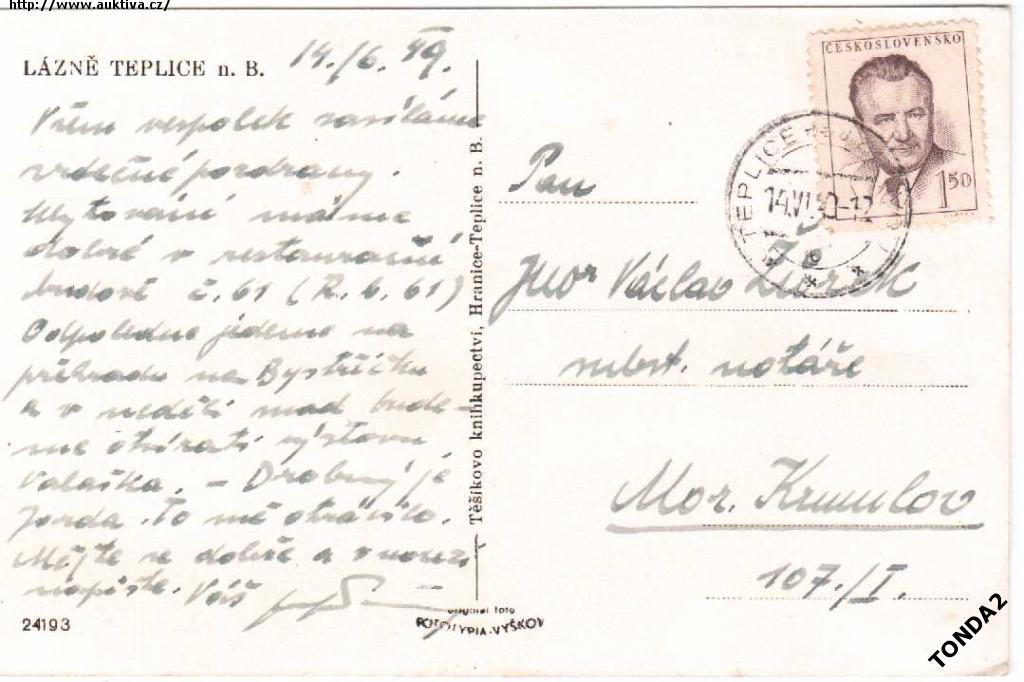 http://www.auktiva.cz/
LÁZNĚ TEPLICE n. B.
14./6. 49.
Všem vespolek zasíláme
srdečné pozdravy.
Ubytování máme
dobré v restaurační
budově č. 61 (R. b. 61)
Odpoledne jedeme na
přehradu na Bystřičku
a v neděli snad bude-
me otvírati výstavu
Valaška. – Drobný je
zrada. To mě otrávilo.
Mějte se dobře a v nouzi
napište. Váš
24193
Těšíkovo knihkupectví, Hranice-Teplice n. B.
original foto
FOTOTYPIA-VYŠKOV
ČESKOSLOVENSKO
1 50
TEPLICE
14.VI
Pan
JUDr Václav
subst. notáře
Mor. Krumlov
107./I.
TONDA2